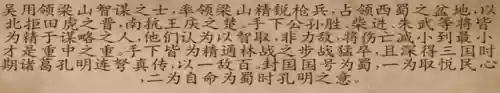 吴用领梁山智谋之士,率领梁山精锐枪兵,占领西蜀之盆地,以
北拒田虎之晋,南抗王庆之楚。手下公孙胜、柴进、朱武等将皆
为精于谋略之人,他们认为以智取,非力敌,将伤亡减小到最小
才是重中之重。手下皆为精通林战之步战猛卒,且深得三国时
期诸葛孔明连弩真传,以一敌百。封国国号为蜀,一为取悦民心
,二为自命为蜀时孔明之意。